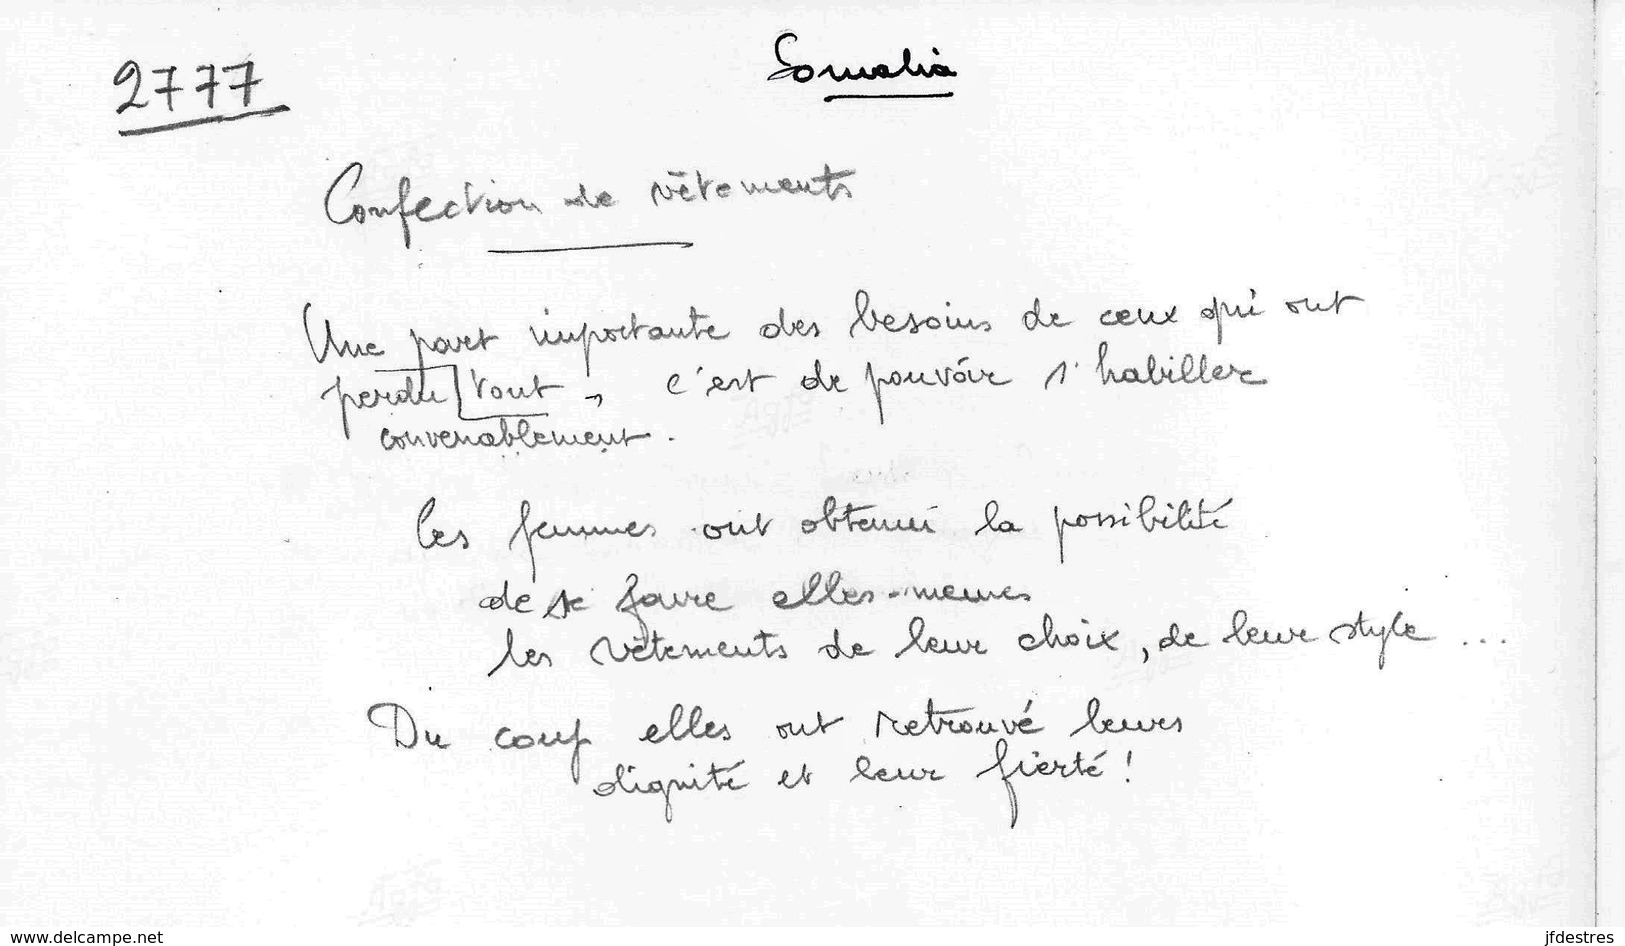 2777
Somalia
Confection de vêtements
Une part importante des besoins de ceux qui ont
perdu tout, c'est de pouvoir s'habiller
convenablement.
les femmes ont obtenu la possibilité
de se faire elles-mêmes
les vêtements de leur choix, de leur style ...
Du coup elles ont retrouvé leurs
dignité et leur fierté !
www.delcampe.net
jfdestres